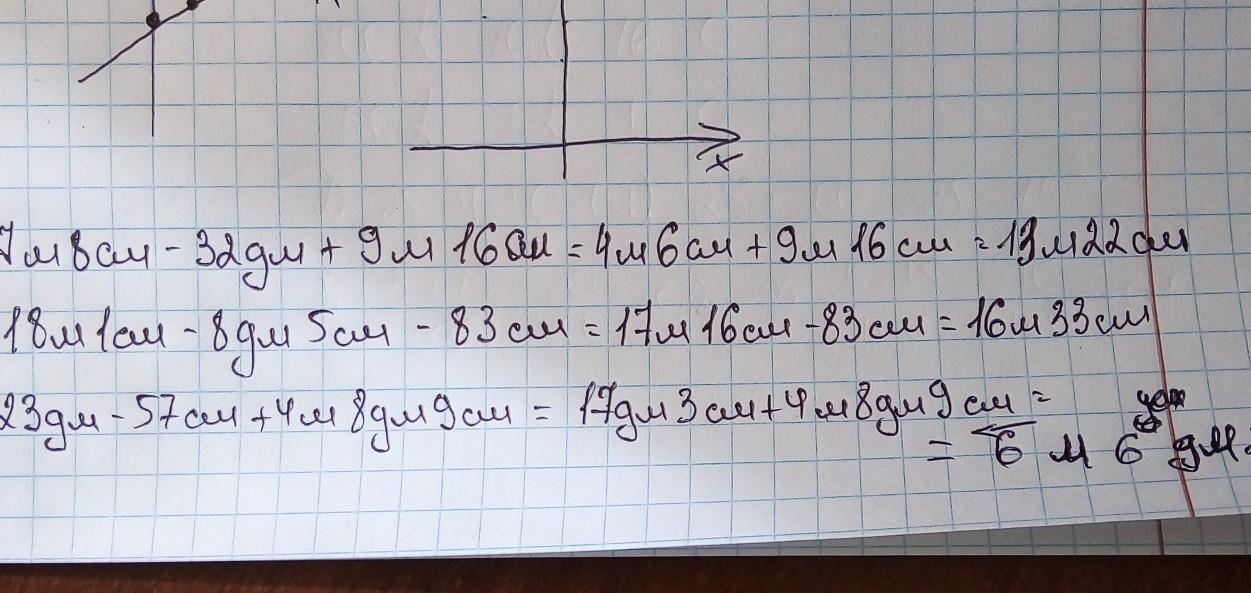 x
7м 8см - 32дм + 9м 16см = 4м 6см + 9м 16см = 13м 22см
18м 1см - 8дм 5см - 83см = 17м 16см - 83см = 16м 33см
23дм - 57см + 4м 8дм 9см = 17дм 3см + 4м 8дм 9см =
= 6 м 6 дм